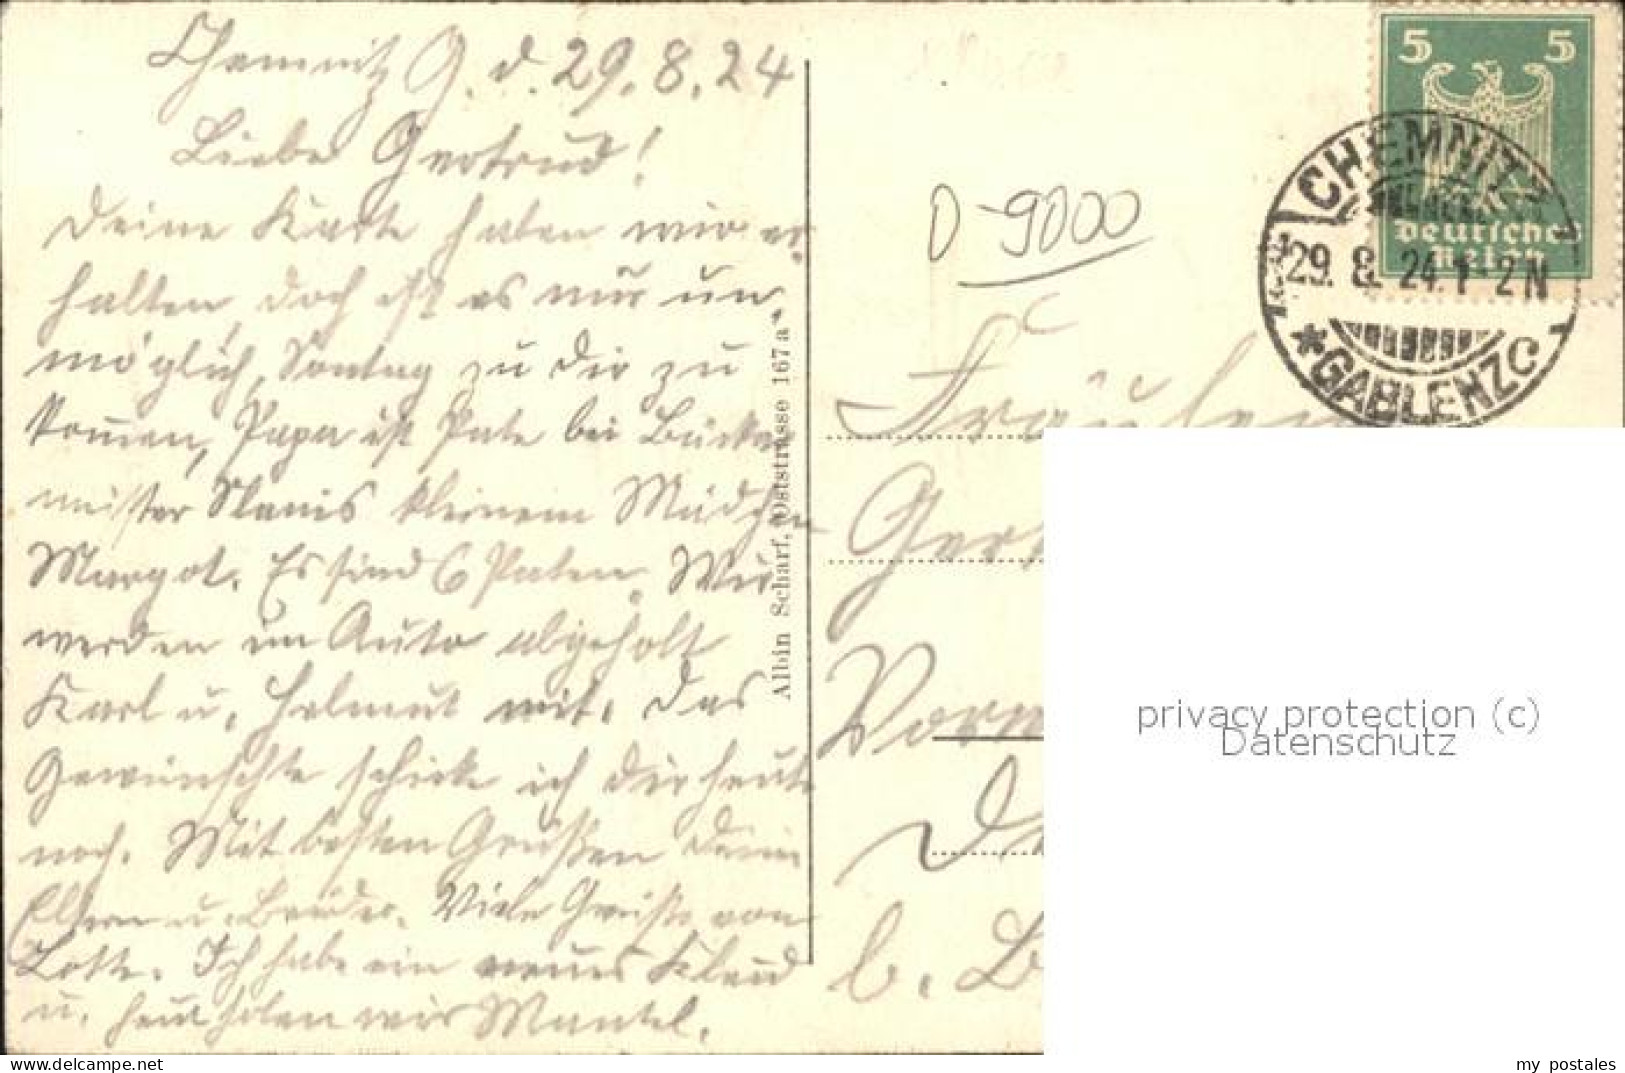 Chemnitz G. d. 29.8.24
Liebe Gertrud!
Deine Karte haben wir er-
halten, doch ist es mir un-
möglich, Sontag zu Dir zu
komen, Papa ist Pate bei Bäcker
meister kleinem Mädchen
Margot. Es sind 6 Paten. Wir
werden im Auto abgeholt
Karl u. Helmut mit. Das
Gewünschte schicke ich Dir heute
noch. Mit besten Grüßen Deine
Eltern u. Brüder. Viele Grüße von
Lotte. Ich habe ein neues Kleid
u. heut holen wir Mantel.
Albin Scharf, Oststrasse 167a
D-9000
5 5
Deutsches
Reich
CHEMNITZ
29. 8. 24. 1-2 N
* GABLENZ C
Fräulein
Ger
Dorn
b. B
privacy protection (c)
Datenschutz
my postales
delcampe.net